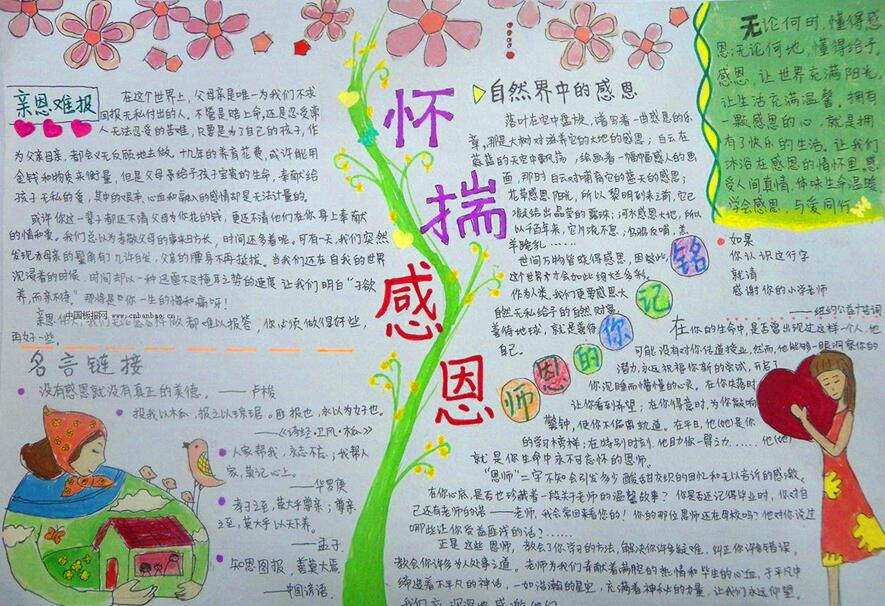 亲恩难报
在这个世界上，父母亲是唯一为我们不求
回报无私付出的人，不管是踏上命，还是忍受常
人无法忍受的苦难，只要是为了自己的孩子，作
为父亲母亲，都会义无反顾地去做。十几年的养育花费，或许能用
金钱和物质来衡量，但是父母亲给予孩子宝贵的生命，奉献给
孩子无私的爱，其中的艰辛，心血和融入的感情却是无法计量的。
或许你这一辈子都还不清父母为你花的钱，更还不清他们在你身上奉献
的情和爱。我们总以为孝敬父母的事来日方长，时间还多着呢。可有一天，我们突然
发现父母亲的鬓角有了几许白发，父亲的腰身不再挺拔。当我们还在自我的世界
沉浸着的时候，时间却以一种迅雷不及掩耳之势的速度让我们明白“子欲
养，而亲不待，”那将是你一生的悔和痛呀！
中国板报网 www.cnbanbao.cn
亲恩伟大，我们无论怎样做都难以报答，你必须做得好些，
再好一些。
名言链接
没有感恩就没有真正的美德。——卢梭
投我以木瓜，报之以琼琚。匪报也，永以为好也。
——《诗经·卫风·木瓜》
人家帮我，永志不忘；我帮人
家，莫记心上。
——华罗庚
孝子之至，莫大乎尊亲；尊亲
之至，莫大乎以天下养。
——孟子
知恩图报，善莫大焉
——中国谚语
怀揣感恩
自然界中的感恩
落叶在空中盘旋，谱写着一曲感恩的乐
章，那是大树对滋养它的大地的感恩；白云在
蔚蓝的天空中飘荡，绘画着一幅幅感人的画
面，那时白云对哺育它的蓝天的感恩；
花草感恩阳光，所以黎明到来之前，它已
凝结给出晶莹的露珠；河水感恩大地，所以
以千百年来，它川流不息；乌鸦反哺，羔
羊跪乳……
世间万物皆晓得感恩，因此
这个世界才会如此绚烂多彩。
作为人类，我们更要感恩大
自然无私给予的自然财富，
善待地球，就是善待
自己。
无论何时，懂得感
恩；无论何地，懂得给予，
感恩，让世界充满阳光，
让生活充满温馨，拥有
一颗感恩的心，就是拥
有了快乐的生活。让我们
沐浴在感恩的情怀里。感
受人间真情，体味生命温暖
学会感恩，与爱同行
师恩的你记铭
如果
你认识这行字
就请
感谢你的小学老师
——纽约公益广告词
在你的生命中，是否曾出现过这样一个人，他
可能没有对你传道授业，然而，他能够一眼洞察你的
潜力，永远祝福你新的尝试，开启了
你沉睡而懵懂的心灵。在你失落时
让你看到希望；在你得意时，为你敲响
警钟，使你不偏离轨道。在平日，他(她)是你
的学习榜样；在特别时刻，他助你一臂之力……，他(她)
就是你生命中永不可忘怀的恩师。
“恩师”二字不知会引发多少酸甜交织的回忆和无以言诉的感激。
在你心底，是否也珍藏着一段关于老师的温馨故事？你是否还记得毕业时，你对自
己还有老师的诺——老师，我会常回来看您的！你的那位恩师还在母校吗？他对你说过
哪些让你受益匪浅的话？……
正是这些恩师，教会了你学习的方法，解决你许多疑难，纠正你许多错误，
教会你许多为人处事之道。老师为我们奉献着满腔的热情和毕生的心血，于平凡中
缔造着不平凡的神话，一如浩瀚的星空，充满着神秘的力量，让我们永远仰望。